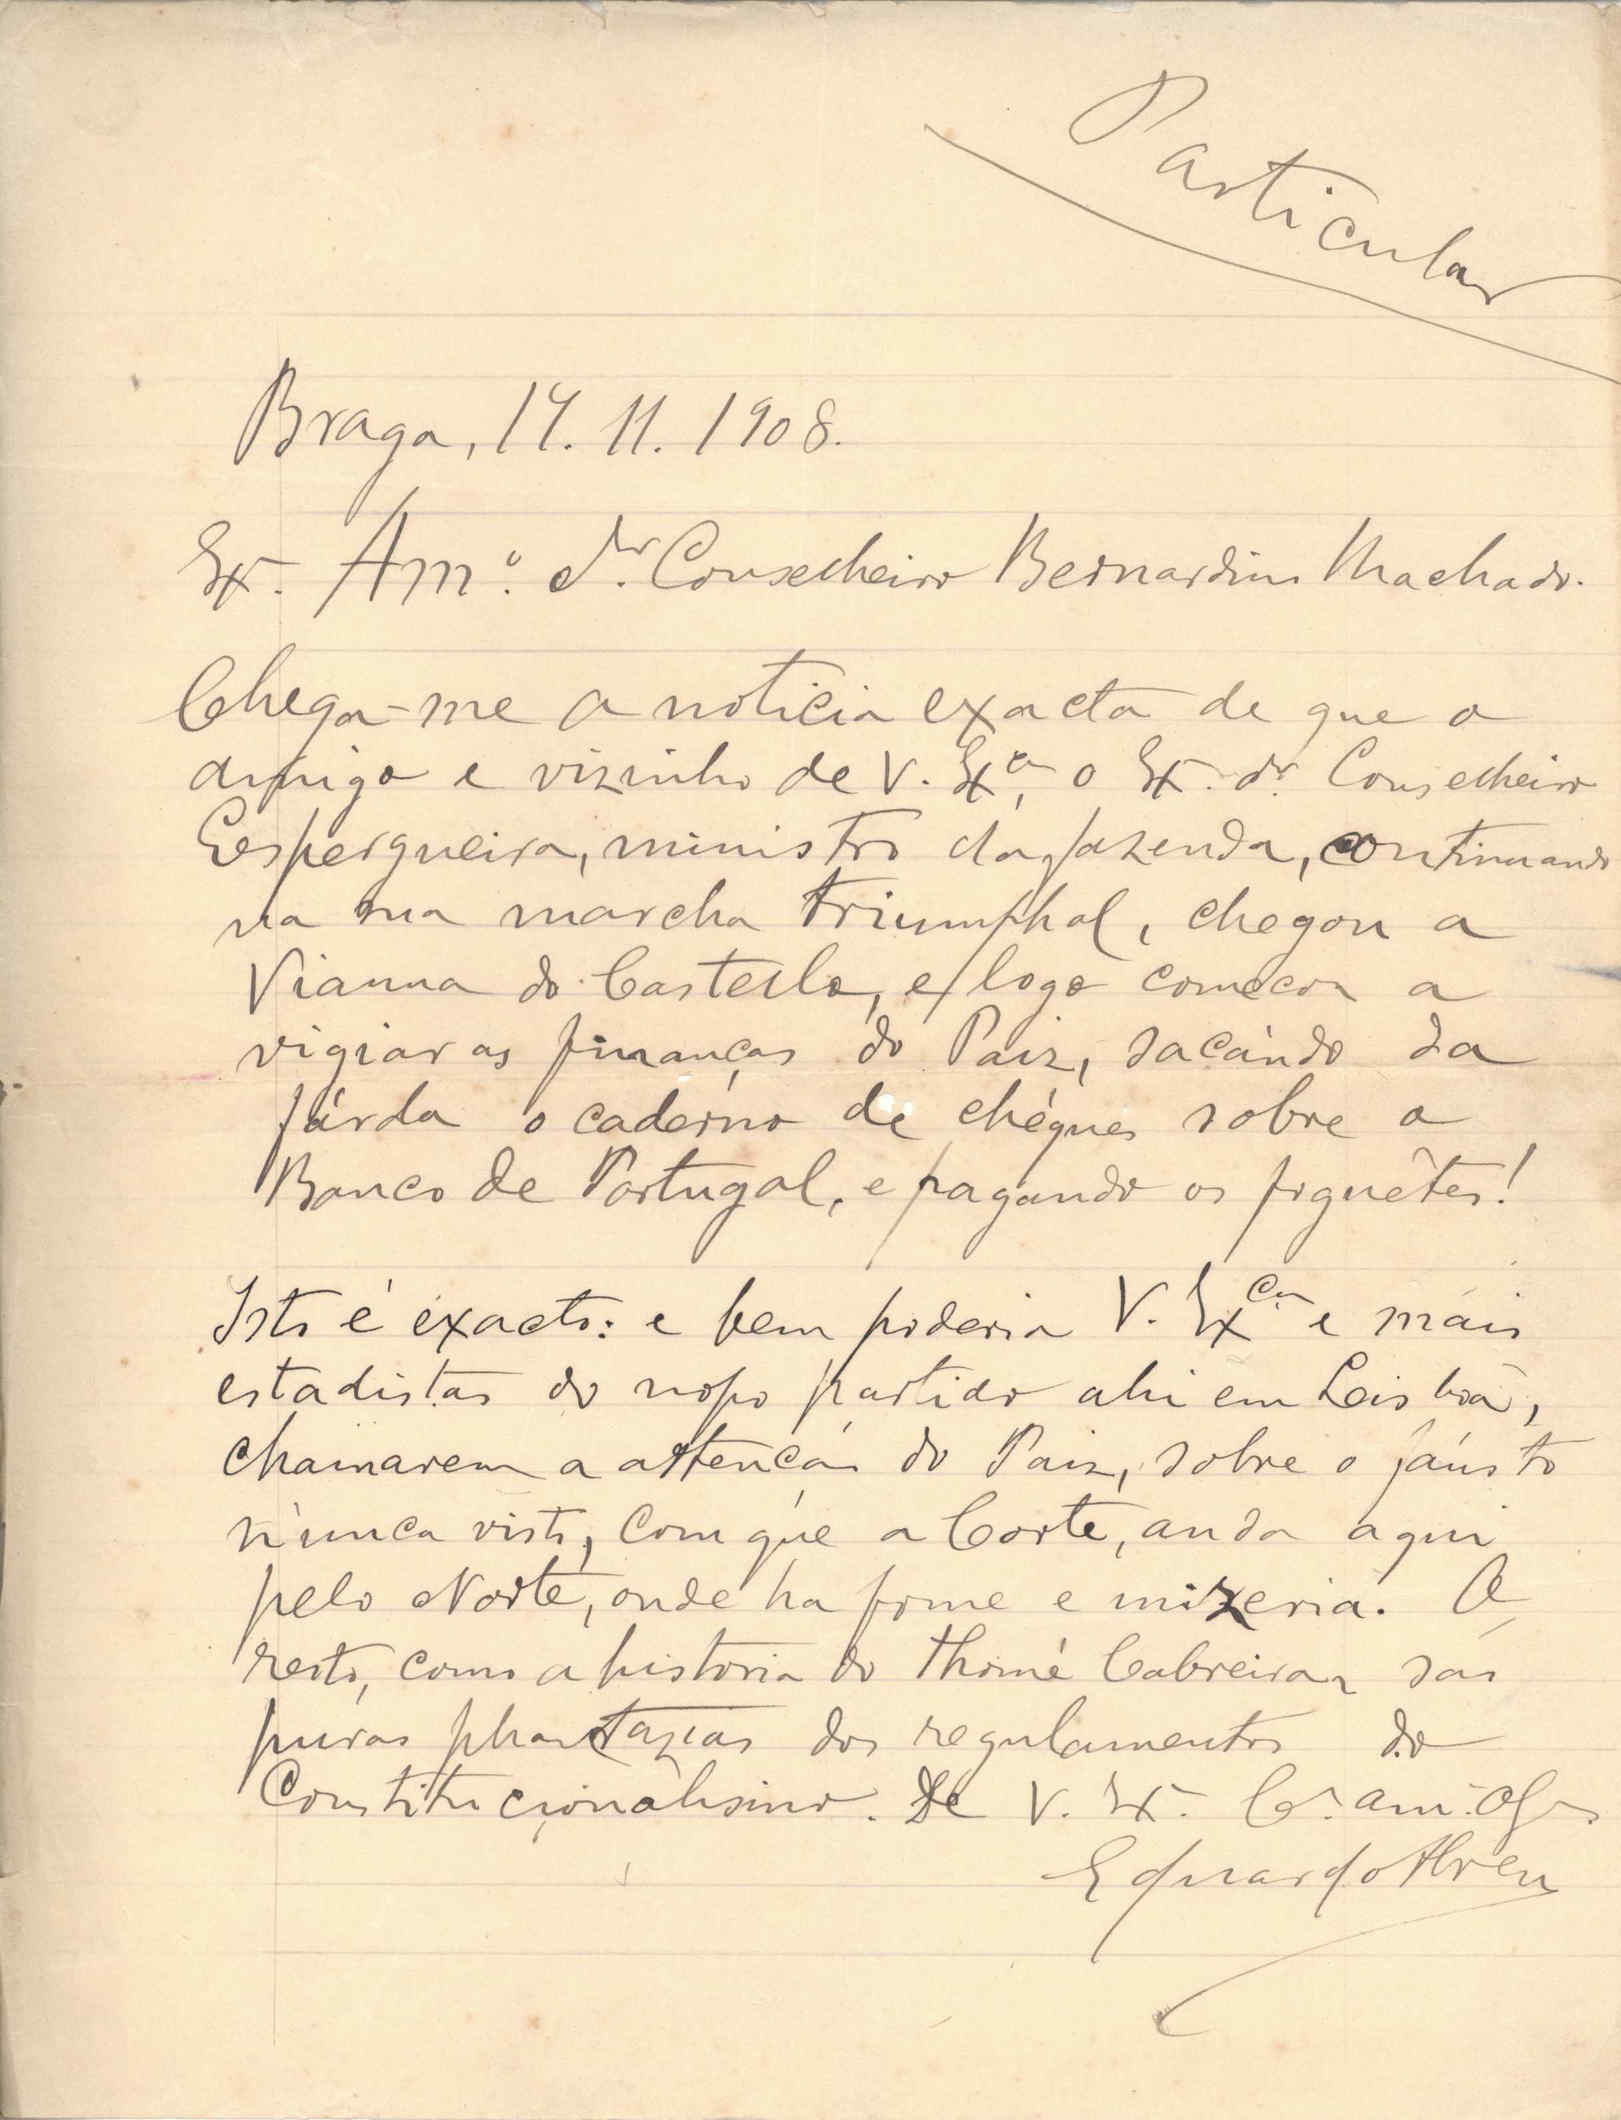 Particular
Braga, 14. 11. 1908.
Ex. Am.º Sr. Conselheiro Bernardino Machado.
Chega-me a noticia exacta de que o
amigo e vizinho de V. Exª, o Ex. Sr. Conselheiro
Espergueira, ministro da fazenda, continuando
na sua marcha triumphal, chegou a
Vianna do Castello, e logo começou a
vigiar as finanças do Paiz, sacando da
fárda o caderno de chéques sobre o
Banco de Portugal, e pagando os foguêtes!
Isto é exacto: e bem poderia V. ExCia e mais
estadistas do nosso partido ahi em Lisboa,
chamarem a attenção do Paiz, sobre o fáusto
nunca visto, com que a Corte, anda aqui
pelo Norte, onde ha fome e mizeria. O
resto, como a historia do Thomé Cabreira, são
puras phantazias dos regulamentos do
Constitucionalismo. De V. Ex.
Eduardo Abreu